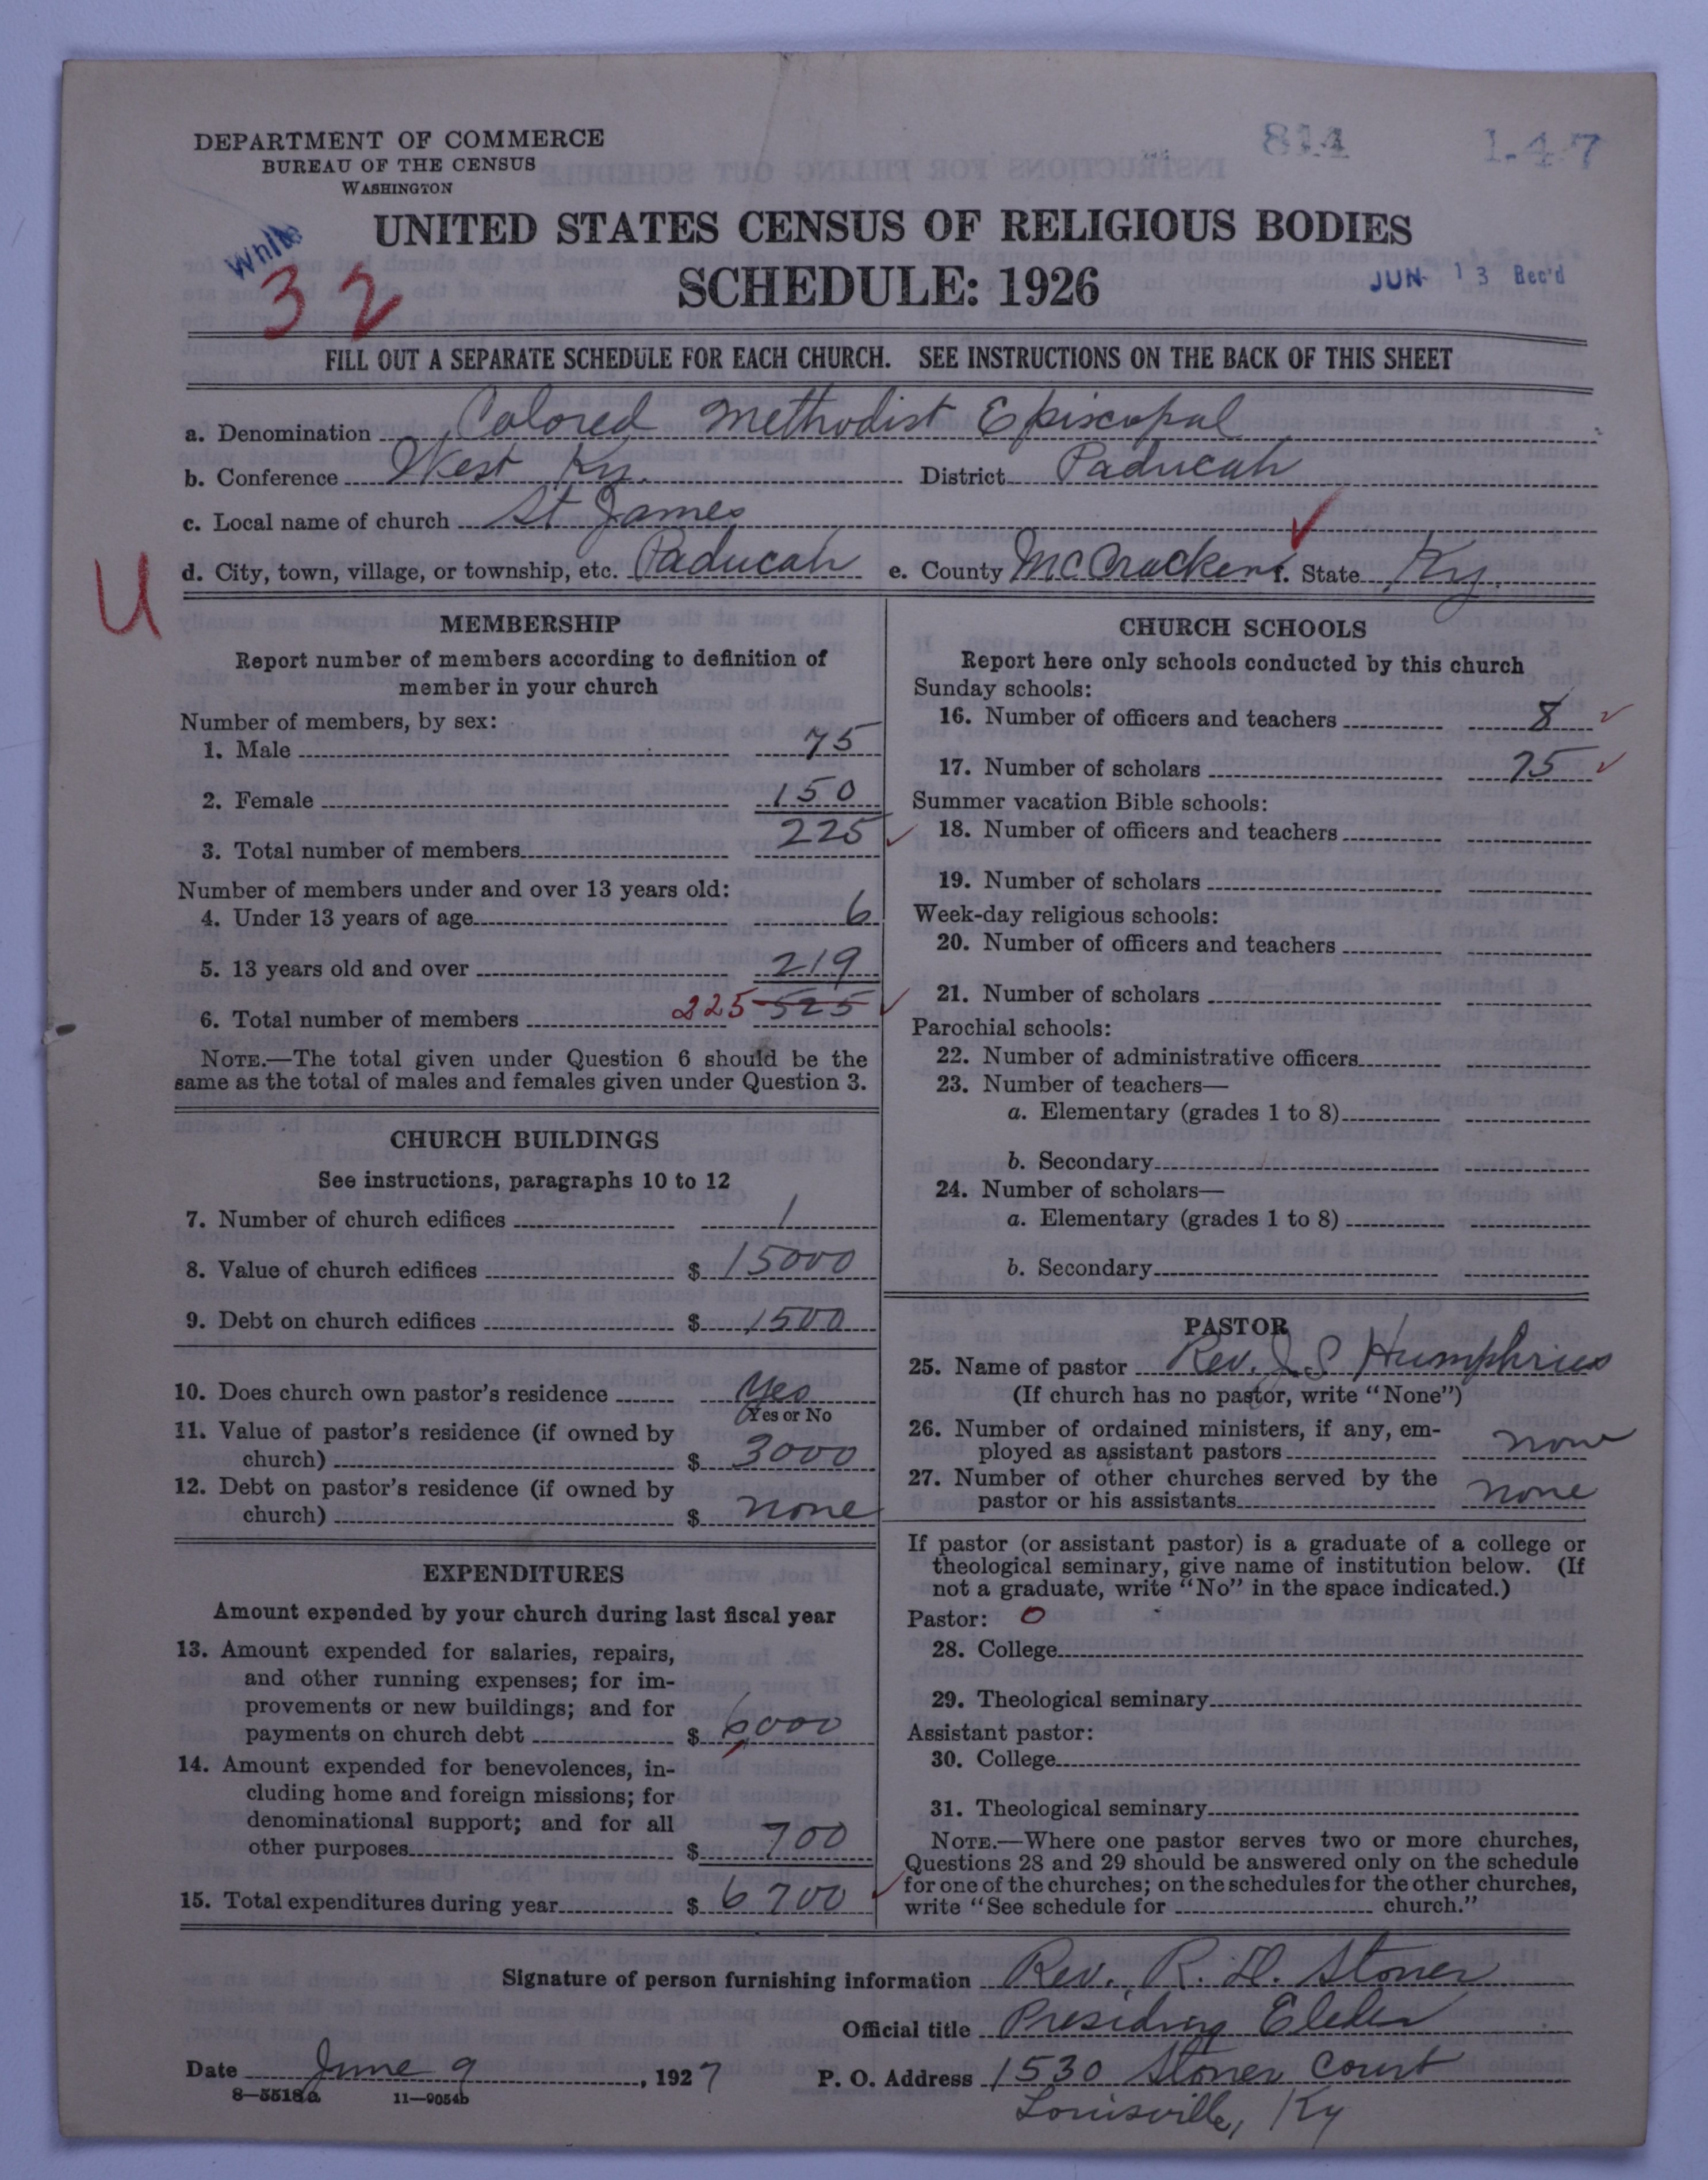 DEPARTMENT OF COMMERCE
BUREAU OF THE CENSUS
WASHINGTON
814
1-47
UNITED STATES CENSUS OF RELIGIOUS BODIES
SCHEDULE: 1926
White
32
JUN 13 Rec'd
FILL OUT A SEPARATE SCHEDULE FOR EACH CHURCH. SEE INSTRUCTIONS ON THE BACK OF THIS SHEET
a. Denomination Colored Methodist Episcopal
b. Conference West Ky. District Paducah
c. Local name of church St James
U
d. City, town, village, or township, etc. Paducah e. County McCracken f. State Ky.
MEMBERSHIP
Report number of members according to definition of
member in your church
Number of members, by sex:
1. Male 75
2. Female 150
3. Total number of members 225
Number of members under and over 13 years old:
4. Under 13 years of age 6
5. 13 years old and over 219
6. Total number of members 225 525
NOTE.—The total given under Question 6 should be the
same as the total of males and females given under Question 3.
CHURCH BUILDINGS
See instructions, paragraphs 10 to 12
7. Number of church edifices 1
8. Value of church edifices $ 15000
9. Debt on church edifices $ 1500
10. Does church own pastor's residence Yes
Yes or No
11. Value of pastor's residence (if owned by
church) $ 3000
12. Debt on pastor's residence (if owned by
church) $ none
EXPENDITURES
Amount expended by your church during last fiscal year
13. Amount expended for salaries, repairs,
and other running expenses; for im-
provements or new buildings; and for
payments on church debt $ 6000
14. Amount expended for benevolences, in-
cluding home and foreign missions; for
denominational support; and for all
other purposes $ 700
15. Total expenditures during year $ 6700
CHURCH SCHOOLS
Report here only schools conducted by this church
Sunday schools:
16. Number of officers and teachers 8
17. Number of scholars 75
Summer vacation Bible schools:
18. Number of officers and teachers
19. Number of scholars
Week-day religious schools:
20. Number of officers and teachers
21. Number of scholars
Parochial schools:
22. Number of administrative officers
23. Number of teachers—
a. Elementary (grades 1 to 8)
b. Secondary
24. Number of scholars—
a. Elementary (grades 1 to 8)
b. Secondary
PASTOR
25. Name of pastor Rev. J. S. Humphries
(If church has no pastor, write "None")
26. Number of ordained ministers, if any, em-
ployed as assistant pastors none
27. Number of other churches served by the
pastor or his assistants none
If pastor (or assistant pastor) is a graduate of a college or
theological seminary, give name of institution below. (If
not a graduate, write "No" in the space indicated.)
Pastor: 0
28. College
29. Theological seminary
Assistant pastor:
30. College
31. Theological seminary
NOTE.—Where one pastor serves two or more churches,
Questions 28 and 29 should be answered only on the schedule
for one of the churches; on the schedules for the other churches,
write "See schedule for church."
Signature of person furnishing information Rev. R. D. Stoner
Official title Presiding Elder
Date June 9, 1927 P. O. Address 1530 Stoner Court
Louisville, Ky
8-5518a 11-9054b